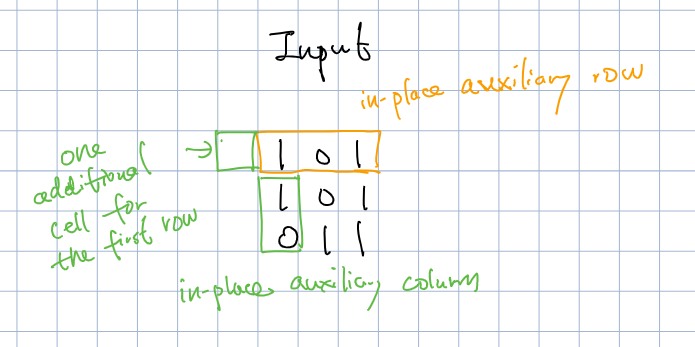 Input
in-place auxiliary row
one
additional
cell for
the first row
→
1 0 1
1 0 1
0 1 1
in-place auxiliary column